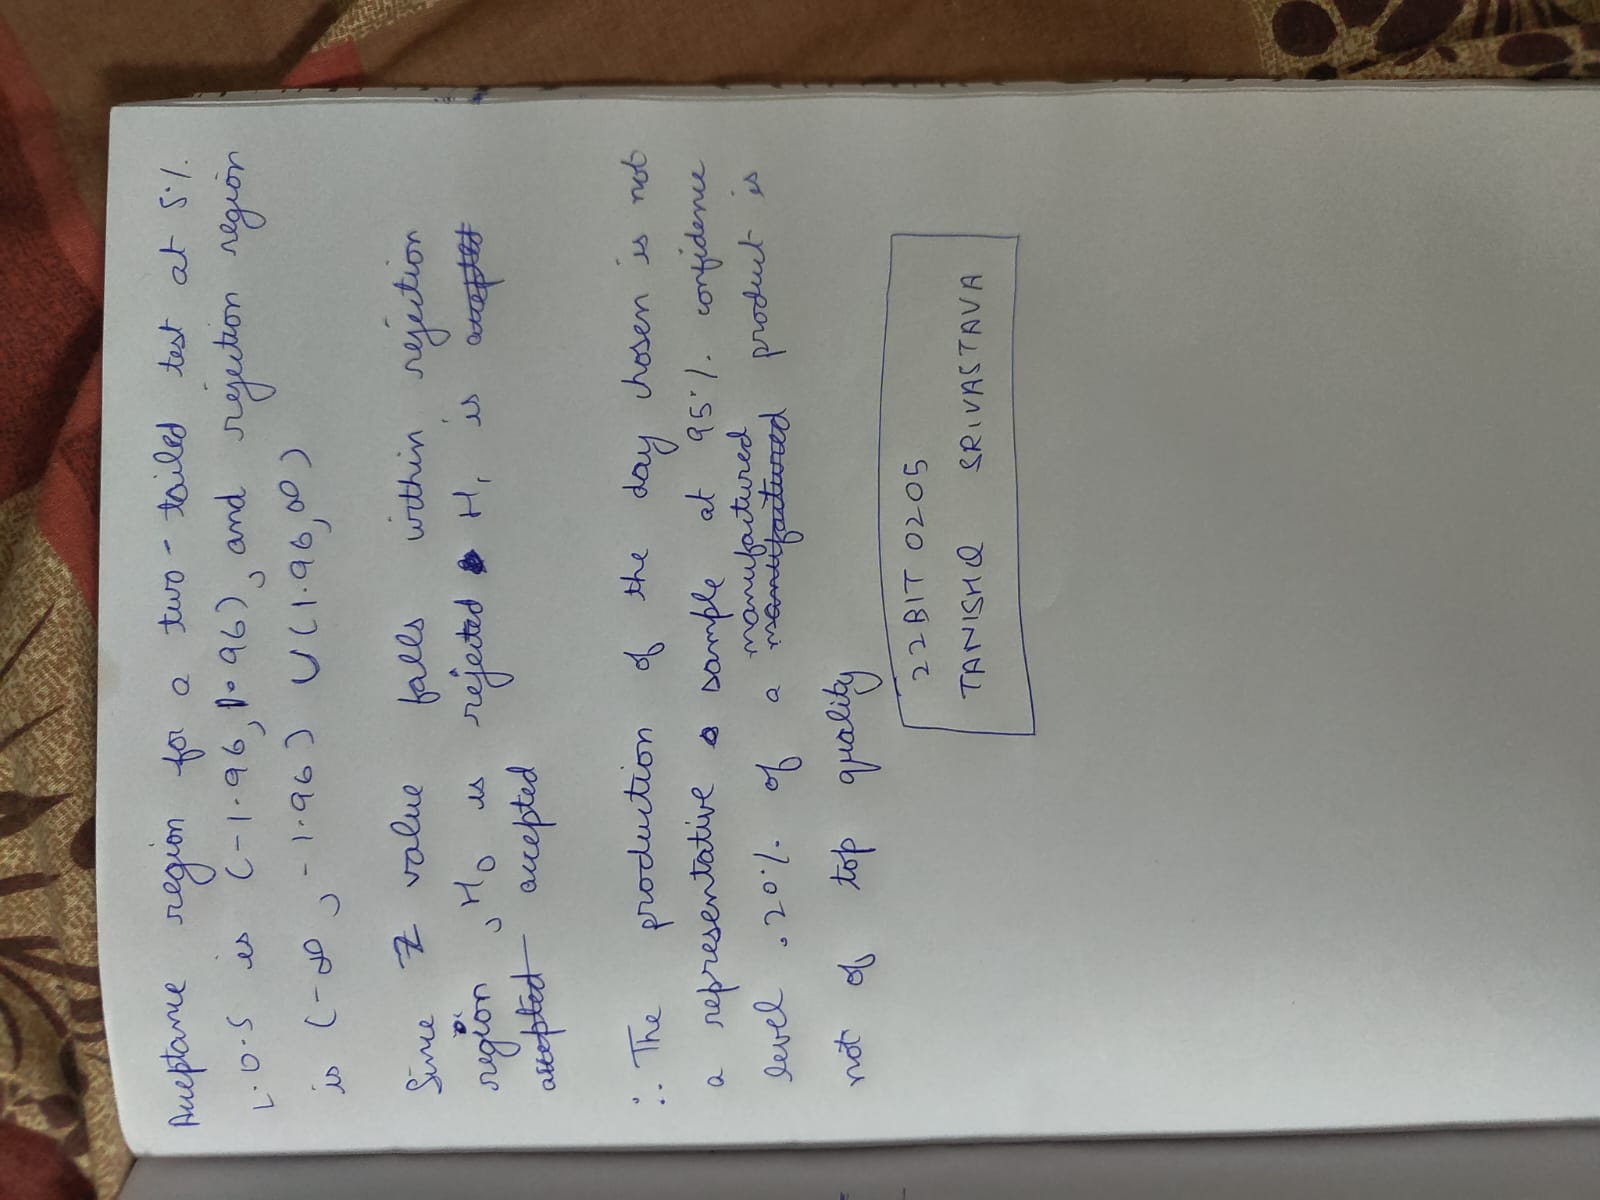 Acceptance region for a two-tailed test at 5%
L.O.S is (-1.96, 1.96), and rejection region
is (-∞, -1.96) ∪ (1.96, ∞)
Since Z value falls within rejection
region, H0 is rejected H1 is accepted
accepted accepted
∴ The production of the day chosen is not
a representative sample at 95% confidence
level. 20% of a manufactured product is
manufactured
not of top quality
22BIT0205
TANISHQ SRIVASTAVA